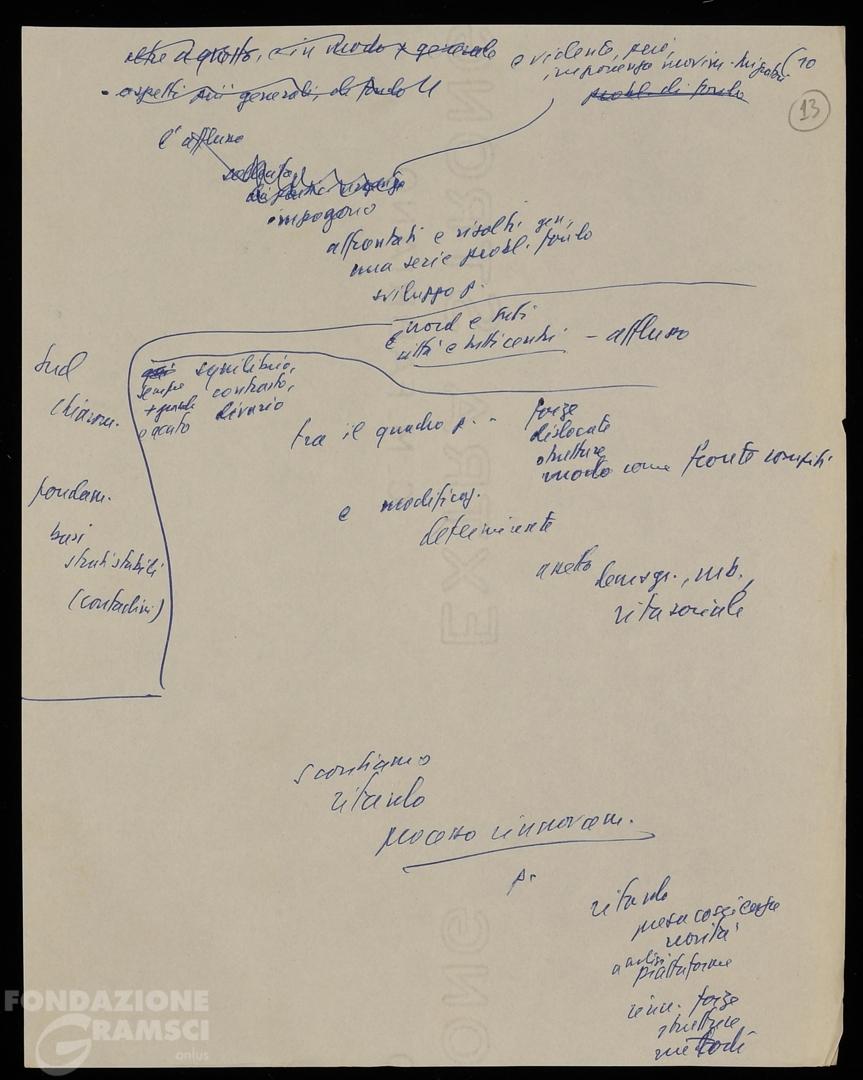 oltre a questo, e in modo + generale
evidente, però,
imponenza movim. migratori (10
• aspetti più generali, di fondo
probl. di fondo
13
l'afflusso
impongono
affrontati e risolti gen.
una serie probl. fondo
sviluppo p.
è nord e tutti
città e tutti centri - afflusso
Sud
chiarom.
sempre
+ grande
e acuto
squilibrio,
contrasto,
divario
tra il quadro p. -
forze
dislocate
strutture
modo come fronte compiti
fondam.
basi
strati stabili
(contadini)
e modificaz.
determinente
assetto
demogr., urb.,
vita sociale
scontiamo
ritardo
processo rinnovam.
p.
ritardo
presa coscienza
novità
analisi
piattaforme
rinn. forze
strutture
metodi
FONDAZIONE
GRAMSCI
onlus